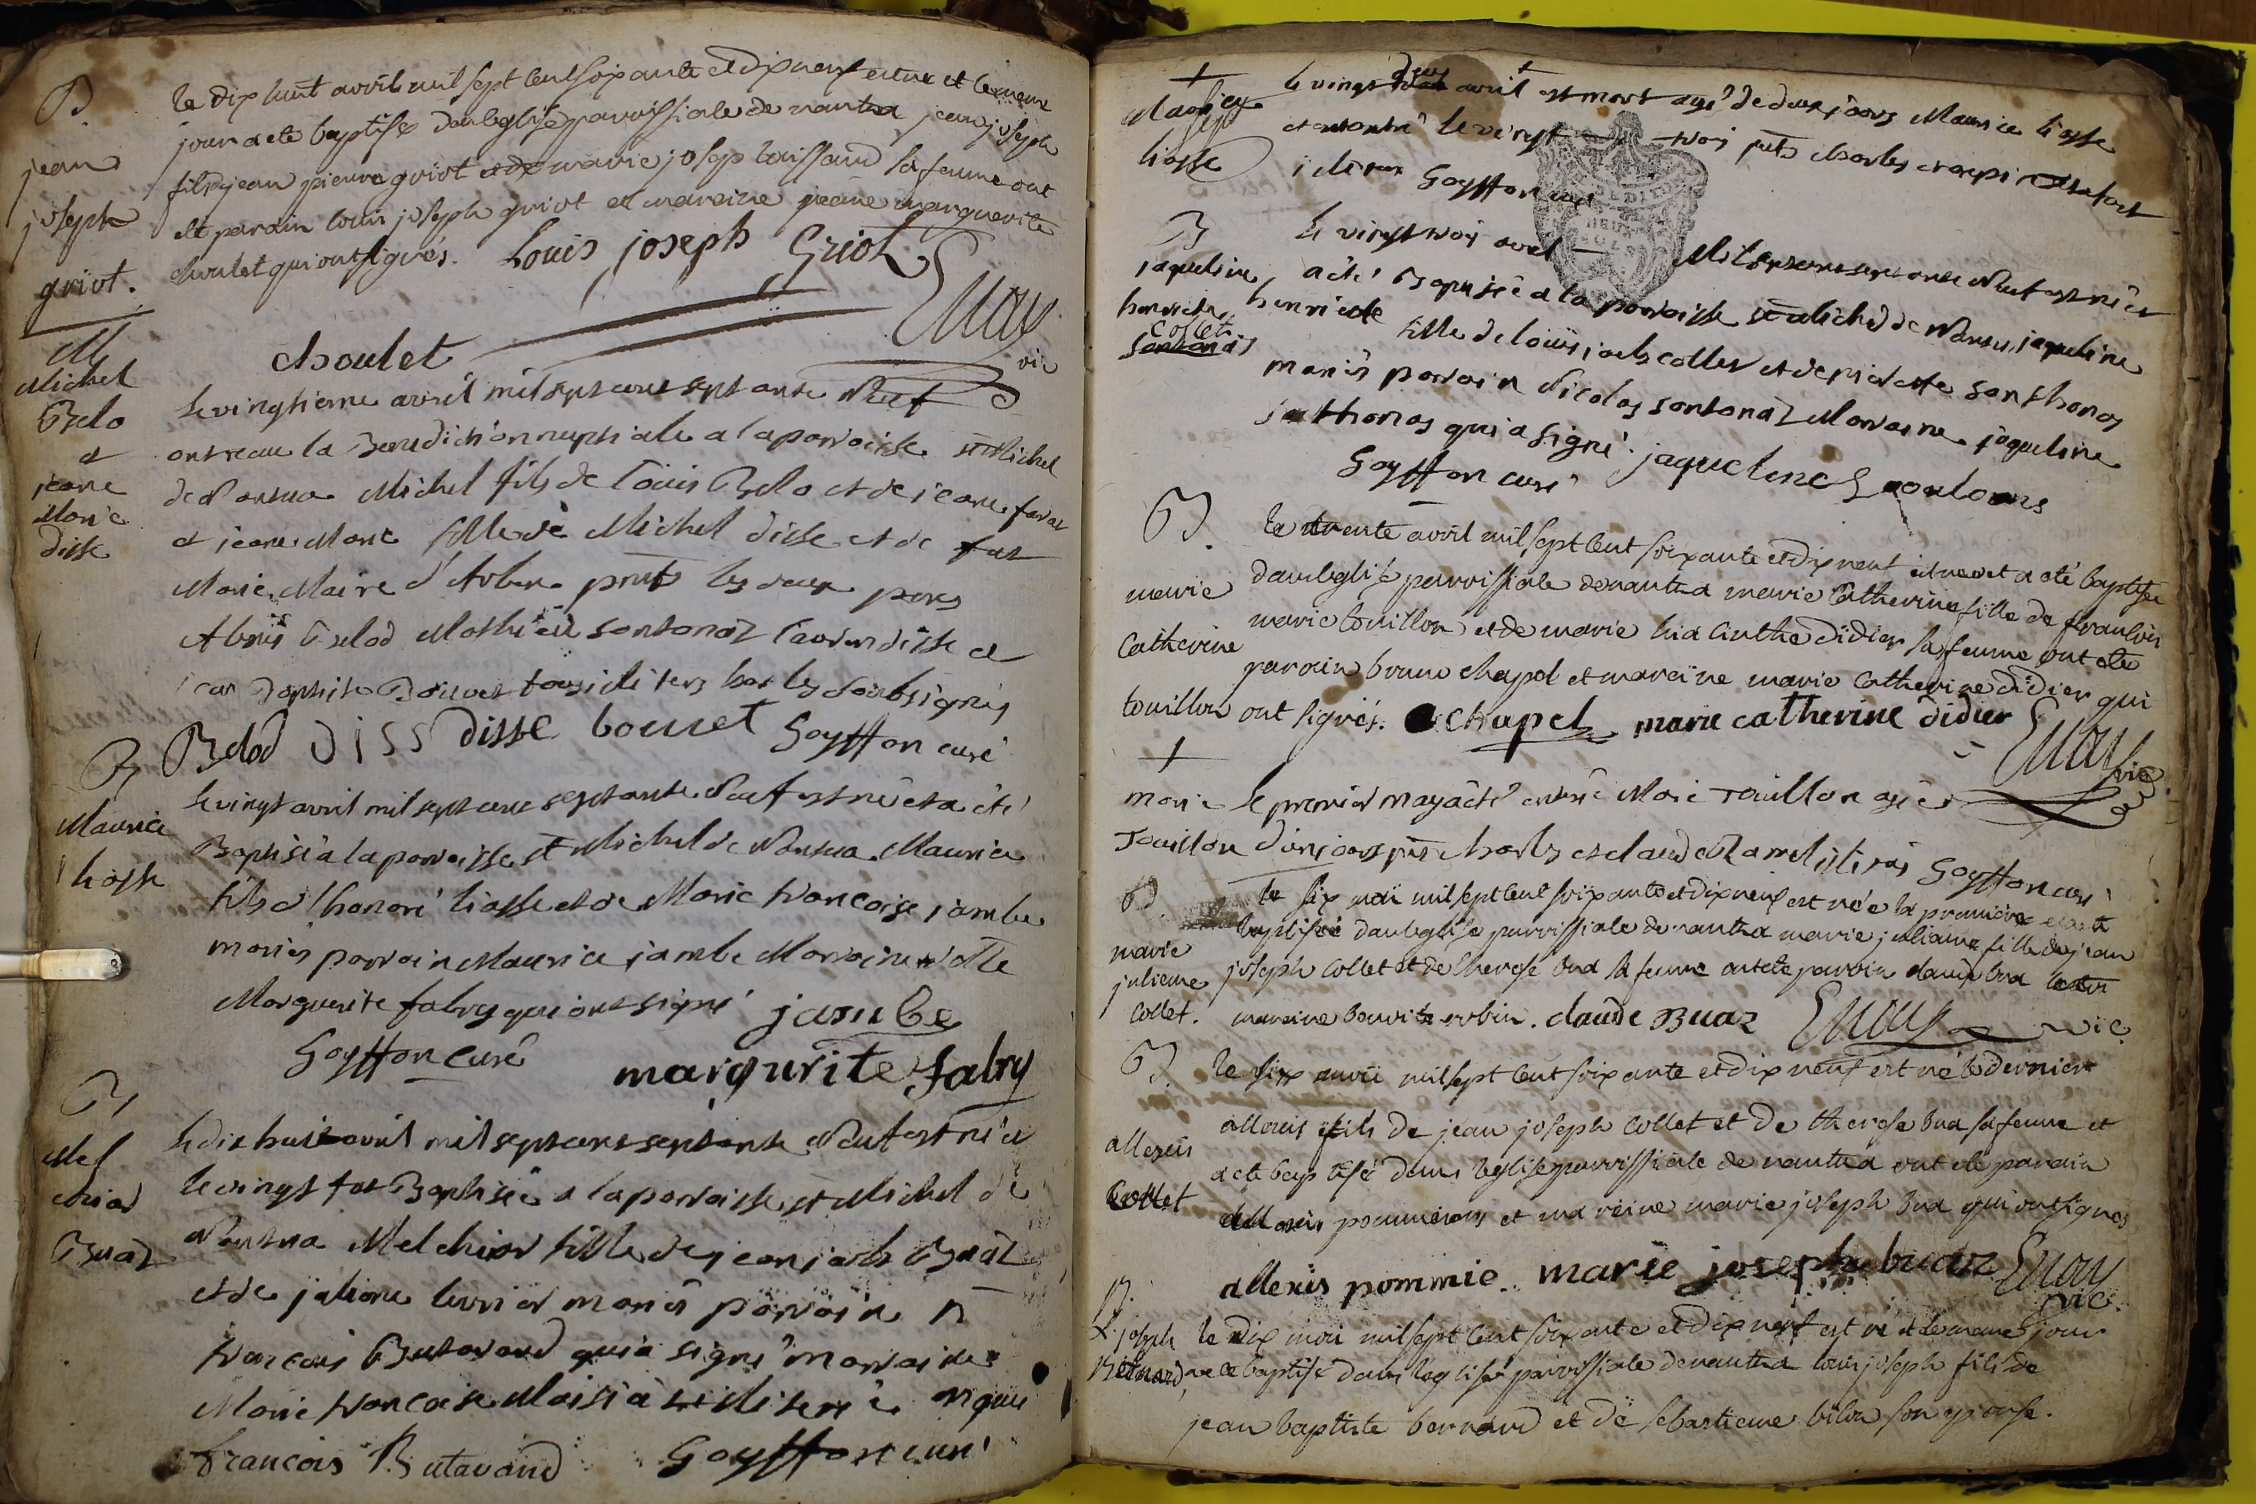 B.
jean
joseph
griot.
le dix huit avril mil sept cent soixante et dix neuf est né et le meme
jour a eté baptisé dans leglise parroissiale de nantua jean joseph
fils de jean pierre griot et de marie josep buissand sa femme ont
eté parain louis joseph griot et maraine jeanne marguerite
choulet qui ont signés. Louis joseph Griot
choulet Evay
vic
M
Michel
Belo
et
jeane
Marie
disse
le vingtieme avril mil sept cent septante Neuf
ont recue la Benediction nuptiale a la parroisse st Michel
de Nantua Michel fils de Louis Belo et de jeane
et jeane Marie fille de Michel disse et de
Marie Maire d'Arben pnts les deux peres
Belod Mathieu santonaz disse et
jean Baptiste Bouvet tous iliteres hors les soubsignés
Belod diss disse bouvet Goyffon curé
B
Maurice
liasse
le vingt avril mil sept cent septante Neuf est né et a été
Baptisé a la parroisse st Michel de Nantua Maurice
fils d'honoré liasse et de Marie francoise jambe
mariés parrain Maurice jambe Marraine
Marguerite fabry qui ont signé jambe
Goyffon curé
margurite fabry
B
Mel
chior
Buaz
le dix huit avril mil sept cent septante Neuf est né et
le vingt fut Baptisée a la parroisse st Michel de
Nantua Melchior fille de jean jacks Buaz
et de juliane mariés parrain
francois Butavand qui a signé marraine
Marie francoise Maisiat iliterée
francois Butavand Goyffon curé
+
Maurice
liasse
le vingt deux avril est mort agé de deux jours Maurice liasse
et enterré le vingt trois pnts charles crespin
iliteres Goyffon curé
B
jaqueline
henriete
collet
le vingt trois avril Mil sept cent septante Neuf est née et
a été Baptisée a la parroisse st Michel de Nantua jaqueline
henriete fille de louis jacks collet et de pierette santhonas
mariés parrain Nicolas santonaz Marraine jaqueline
santhonas qui a signé jaqueline
Goyffon curé
B.
marie
Catherine
touillon
le trente avril mil sept cent soixante et dix neuf est née et a eté baptisée
dans leglise parroissiale de nantua marie Catherine fille de francois
marie touillon et de marie hiacinthe didier sa femme ont eté
parain bruno chapel et maraine marie Catherine didier qui
ont signés. chapel marie catherine didier Evay
vic
+
marie
Touillon
le premier may a été enterrée Marie Touillon agée
d'un jour pnts charles et claude iliterés Goyffon curé
B
marie
julienne
collet.
le six mai mil sept cent soixante et dix neuf est née la premiere et a eté
baptisée dans leglise parroissiale de nantua marie julienne fille de jean
joseph collet et de therese bua sa femme ont eté parrain claude bua
maraine robin. claude Buaz Evay vic.
B.
allexis
Collet
le six mai mil sept cent soixante et dix neuf est né le dernier
allexis fils de jean joseph collet et de therese bua sa femme et
a eté baptisé dans leglise parroissiale de nantua ont eté parain
allexis pommier et maraine marie joseph bua qui ont signés
allexis pommie. marie joseph buaz Evay
vic.
B.
L. joseph
Bernard
le dix mai mil sept cent soixante et dix neuf est né et le meme jour
a eté baptisé dans leglise parroissiale de nantua louis joseph fils de
jean baptiste bernard et de sebastienne son epouse.